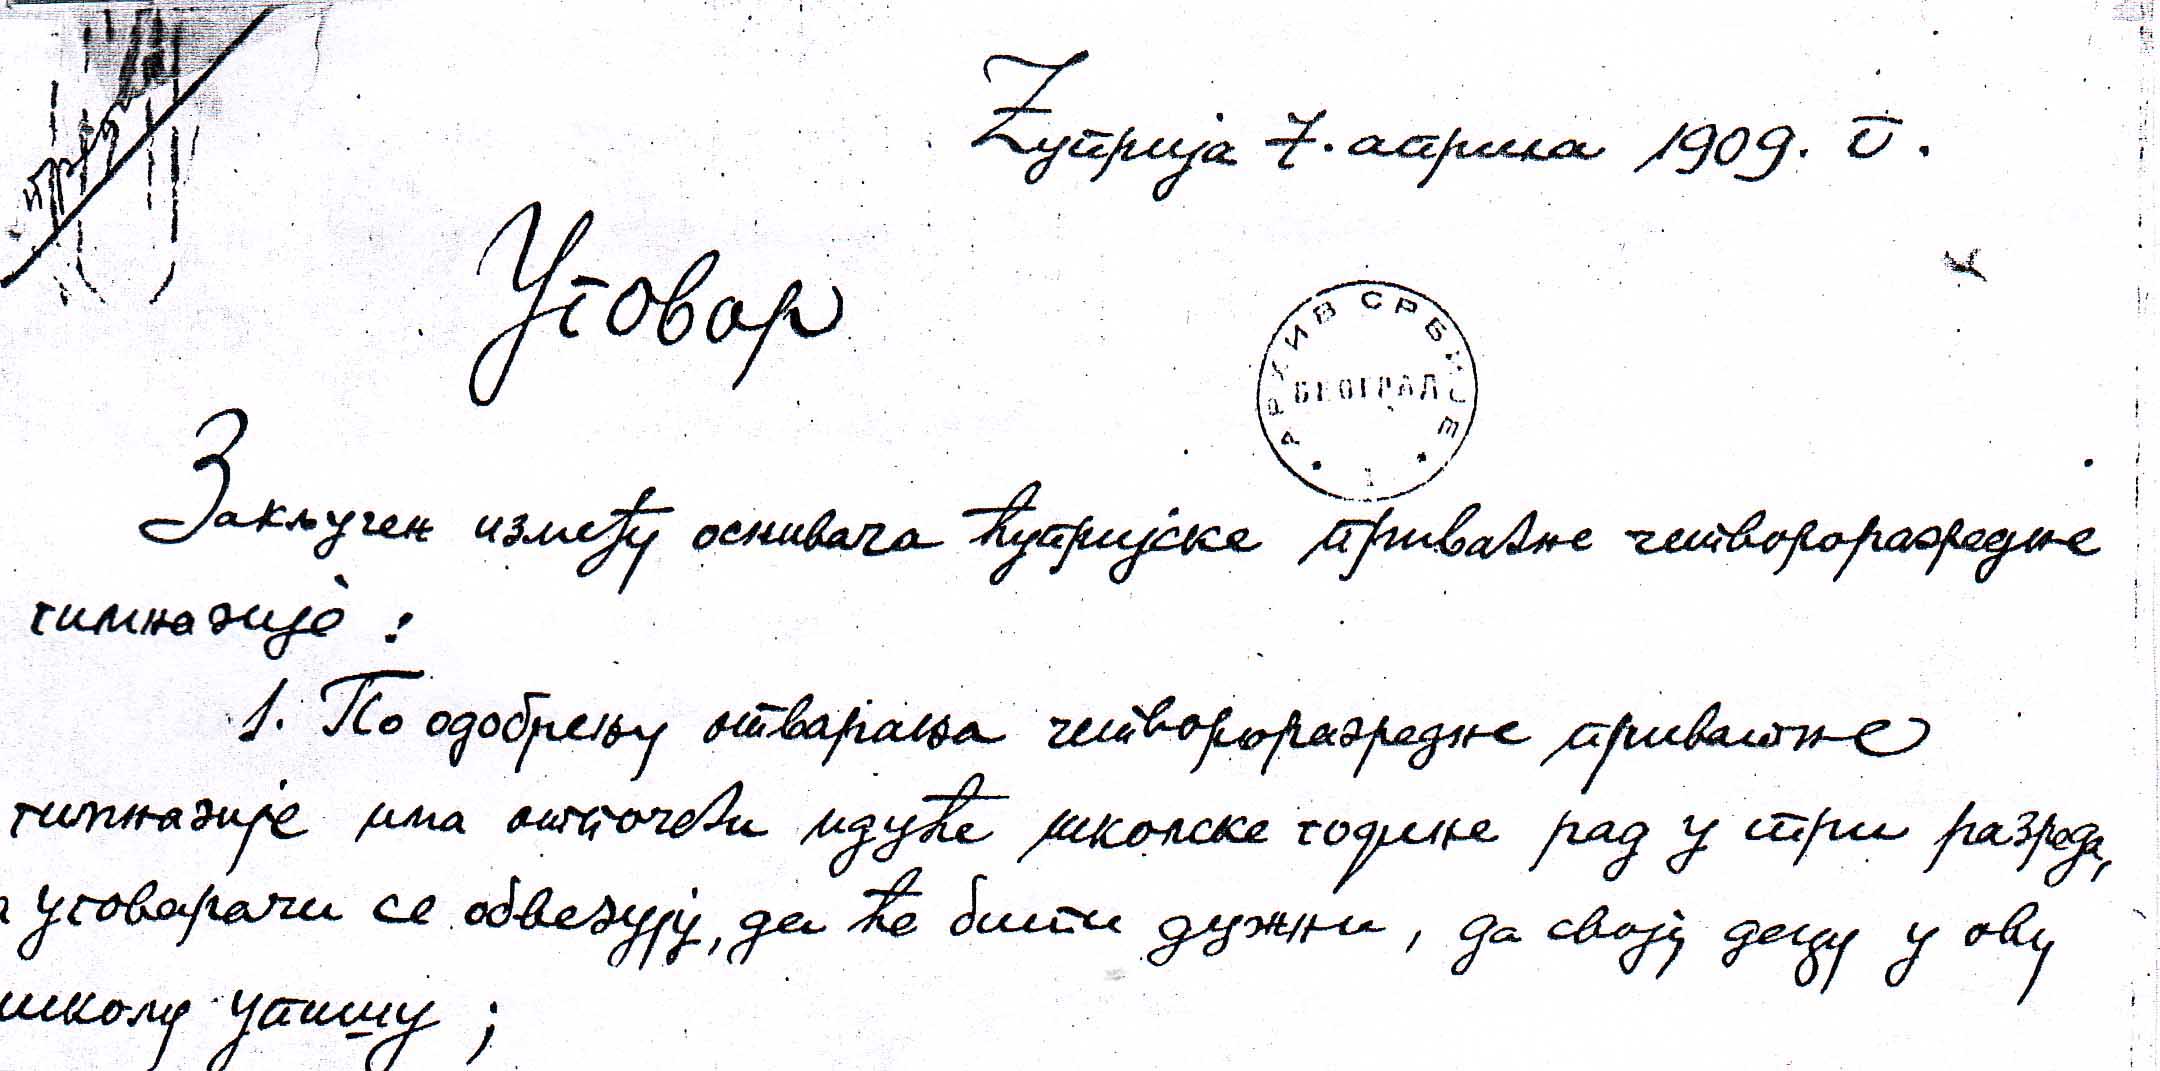 Ћуприја 7. априла 1909. г.
Уговор
АРХИВ СРБИЈЕ
БЕОГРАД
1
Закључен између оснивача ћупријске приватне четвороразредне
гимназије:
1. По одобрењу отварања четвороразредне приватне
гимназије има отпочети идуће школске године рад у три разреда,
а уговарачи се обвезују, да ће бити дужни, да своју децу у ову
школу упишу;